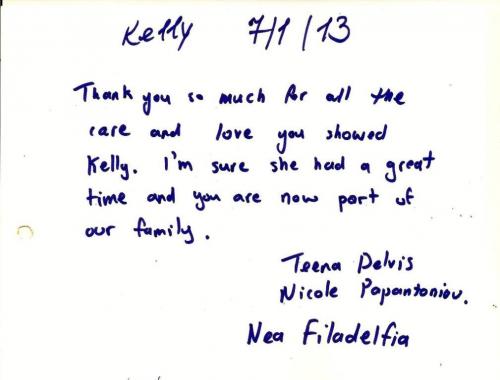 Kelly 7/1/13
Thank you so much for all the
care and love you showed
Kelly. I'm sure she had a great
time and you are now part of
our family.
Teena Delvis
Nicole Papantoniou.
Nea Filadelfia